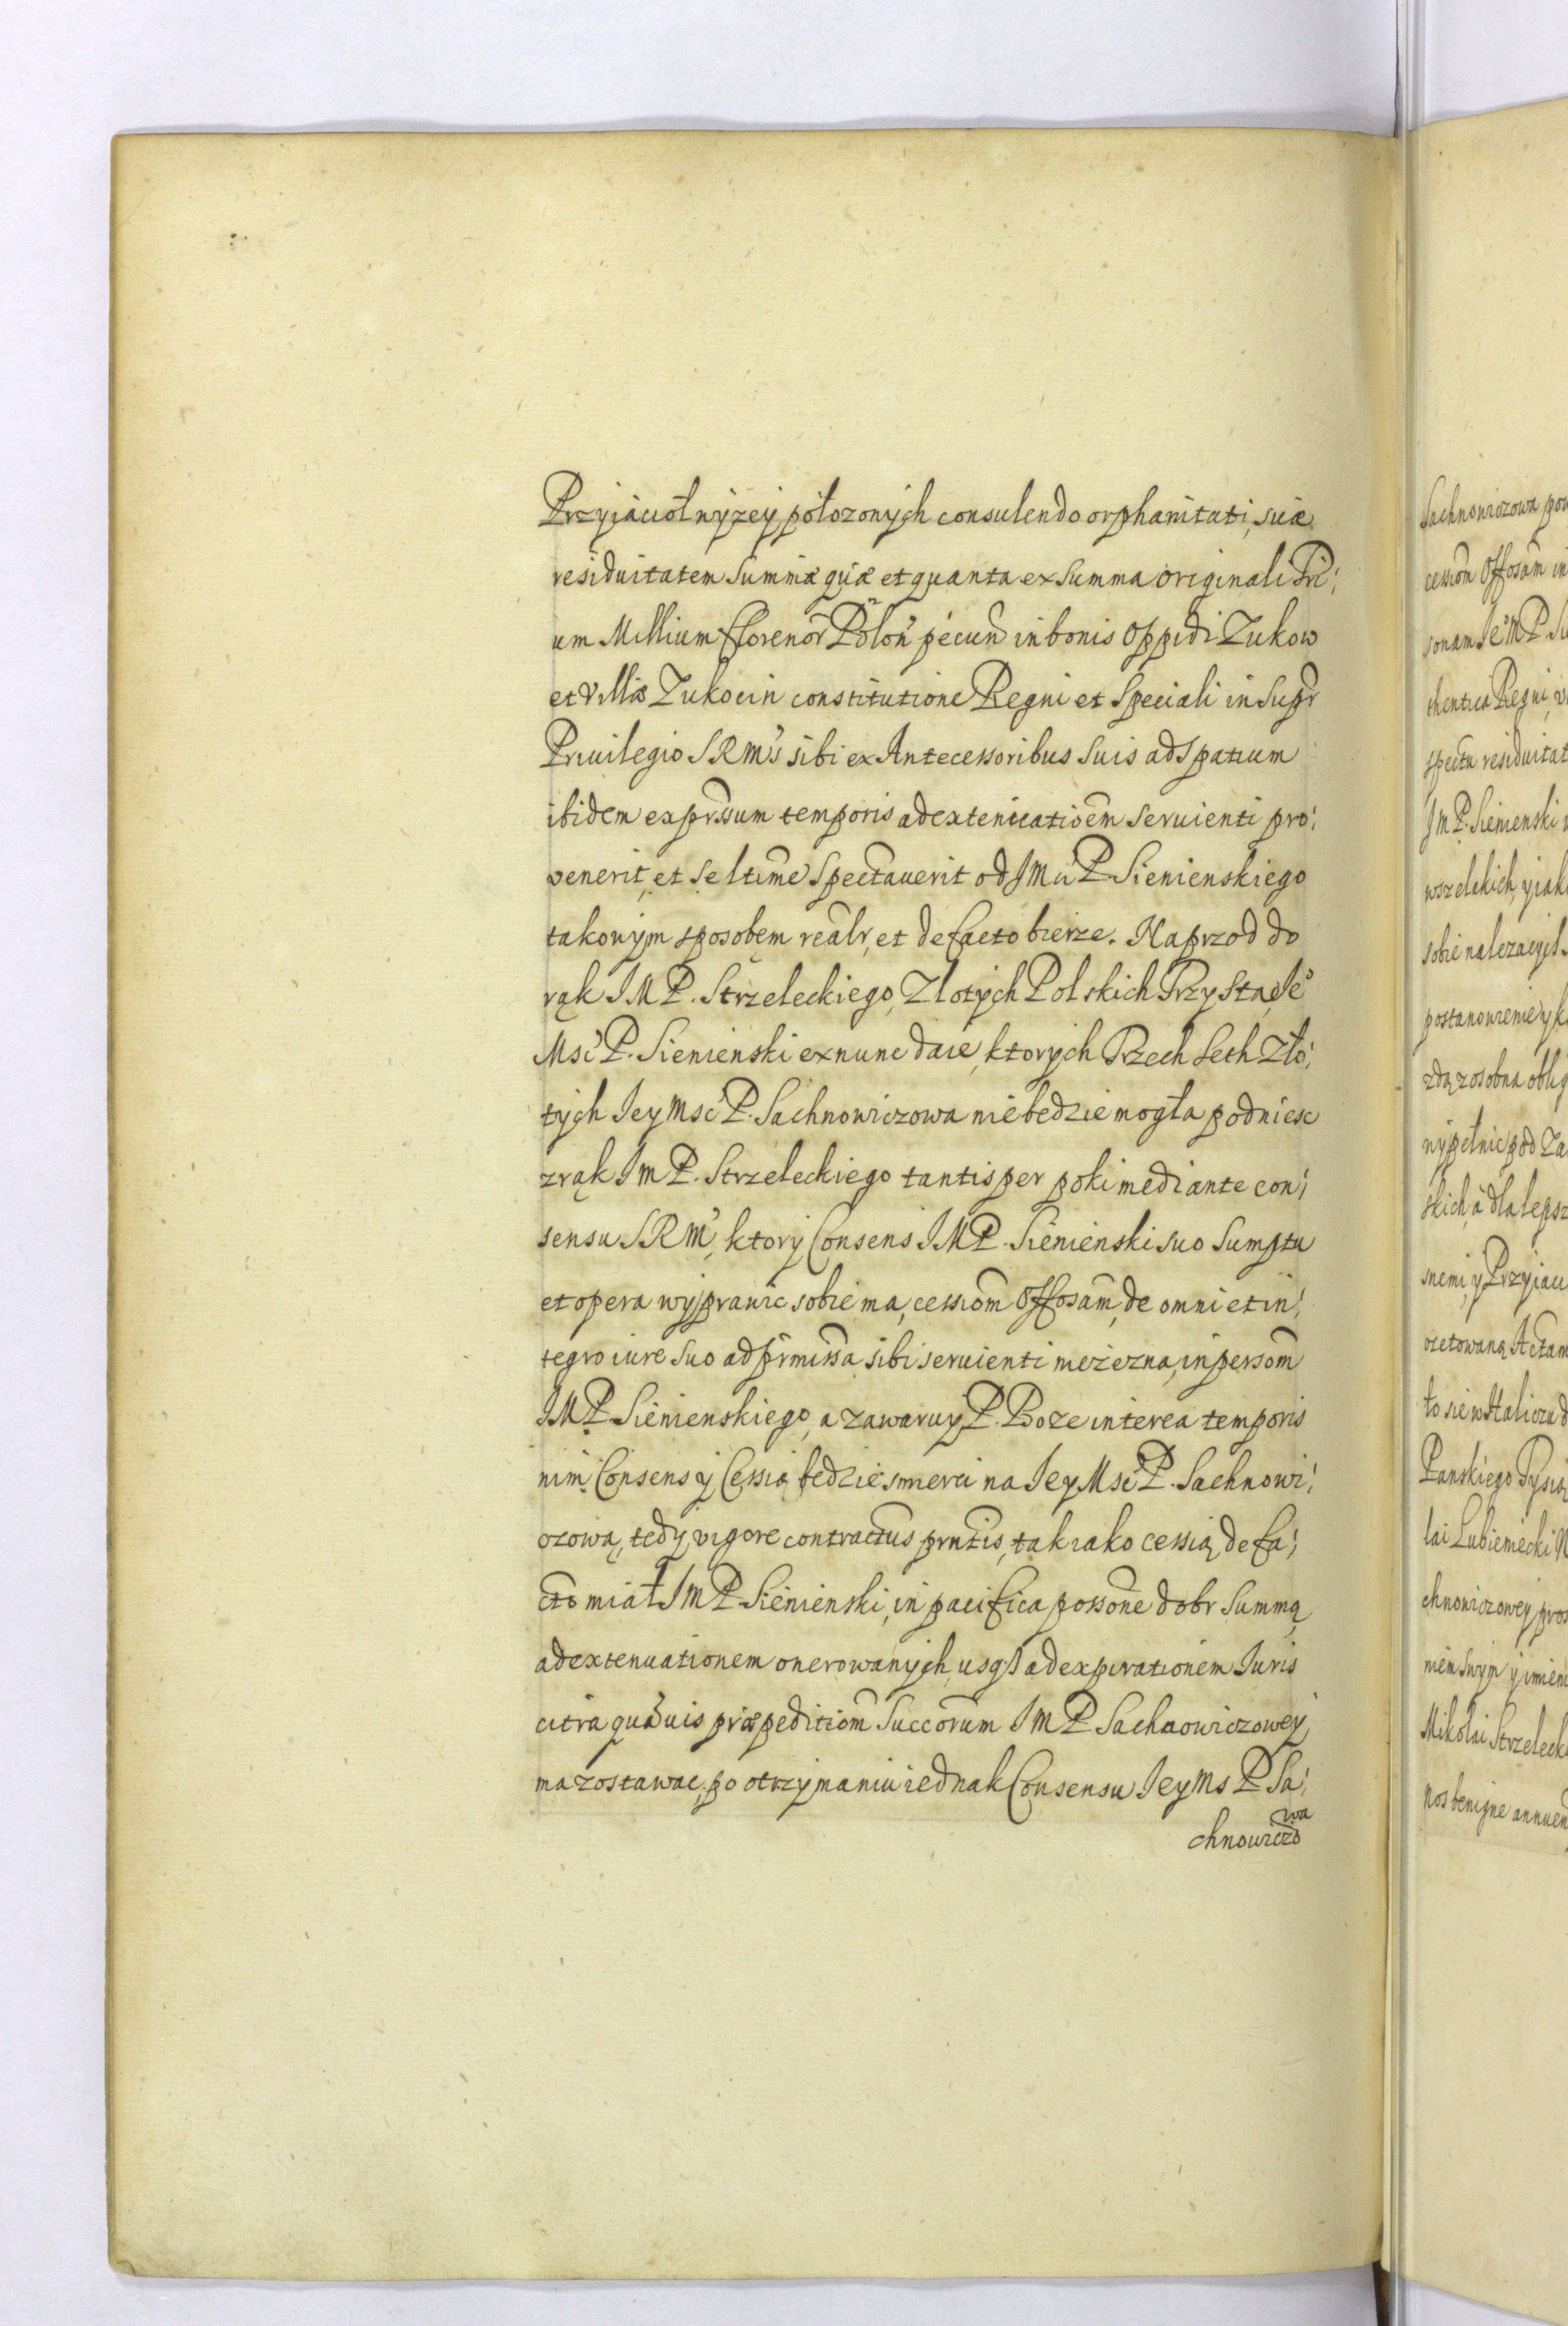 Przyiaciół wyzey połozonych consulendo orphanitati, suæ
residuitatem Summæ quæ et quanta ex Summa originali Tri:
um Millium fflorenor̃ Polon̄ pecun̄ in bonis Oppidi Zukow
et Villæ Zukocin constitutione Regni et Speciali in Supr̄
Priuilegio SRM's sibi ex Antecessoribus Suis ad Spatium
ibidem expr̄ssum temporis ad extenuatiōem seruienti pro:
venerit, et se ltīme Spectauerit od JMci P Sienienskiego
takowym sposobem realr̄, et de facto bierze. Naprzod do
rąk JM P. Strzeleckiego, Zlotych Polskich Trzysta, Je°
Msć P. Sienienski ex nunc daie, ktorych Trzech Seth Zło:
tych Jey Msć P. Sachnowiczowa nie bedzie mogła podniesc
z rąk JM P. Strzeleckiego tantisper poki mediante con:
sensu SRM', ktory Consens JM P. Sienienski suo Sumptu
et opera wyprawic sobie ma, cessiom̄ Offosam̄, de omni et in:
tegro iure Suo ad pr̄missa sibi seruienti niezezna, in persom̄
JM P. Sienienskiego, a zawaruy P. Boze interea temporis
nim Consens y Cessia bedzie smierci na Jey Msć P. Sachnowi:
czową, tedy vigore contractus prn̄tis, tak iako cessią de fa:
cto miał JM P. Sienienski, in pacifica possōne dobr Summą
ad extenuationem onerowanych, usq3 ad expirationem Juris
citra quāuis præpeditiom̄ Succorum JM P Sachnowiczowey
ma zostawac, po otrzymaniu iednak Consensu Jey Ms P Sa:
chnowiczowa
Sachnowiczowa
cessiom̄ Offosam̄ in
sonam Je° M P.
thentica Regni,
spectu residuitat
JM P. Sienienski
wszelakich, y iak
sobie nalezacych
postanowienie y
zdą zosobna oblig
wypełnic pod Za
skich, a dla lepsz
snemi, y Przyiaci
czetowaną Actam
to sie w Haliczu
Panskiego Tysią
lai Lubieniecki
chnowiczowey pros
niem swym y imien
Mikolai Strzeleck
nos benigne annuen